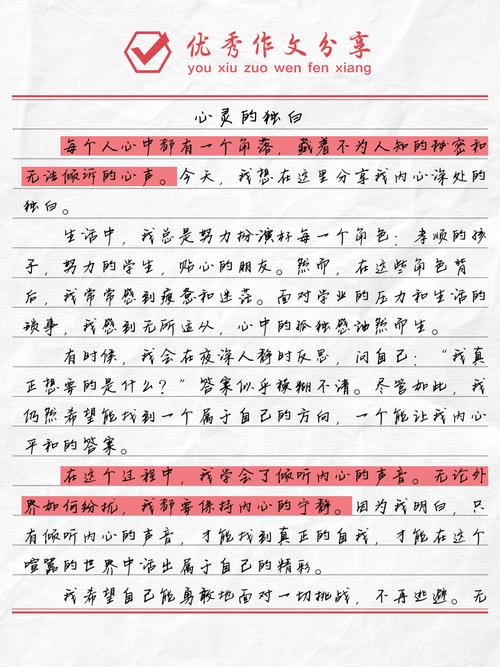 优秀作文分享
you xiu zuo wen fen xiang
心灵的独白
每个人心中都有一个角落，藏着不为人知的秘密和
无法倾诉的心声。今天，我想在这里分享我内心深处的
独白。
生活中，我总是努力扮演好每一个角色：孝顺的孩
子，努力的学生，贴心的朋友。然而，在这些角色背
后，我常常感到疲惫和迷茫。面对学业的压力和生活的
琐事，我感到无所适从，心中的孤独感油然而生。
有时候，我会在夜深人静时反思，问自己：“我真
正想要的是什么？”答案似乎模糊不清。尽管如此，我
仍然希望能找到一个属于自己的方向，一个能让我内心
平和的答案。
在这个过程中，我学会了倾听内心的声音。无论外
界如何纷扰，我都要保持内心的宁静。因为我明白，只
有倾听内心的声音，才能找到真正的自我，才能在这个
喧嚣的世界中活出属于自己的精彩。
我希望自己能勇敢地面对一切挑战，不再逃避。无